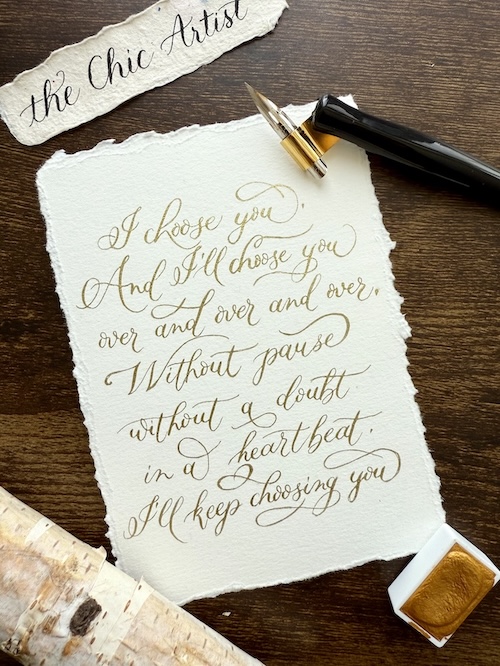 the Chic Artist
I choose you.
And I'll choose you
over and over and over.
Without pause
without a doubt
in a heartbeat.
I'll keep choosing you